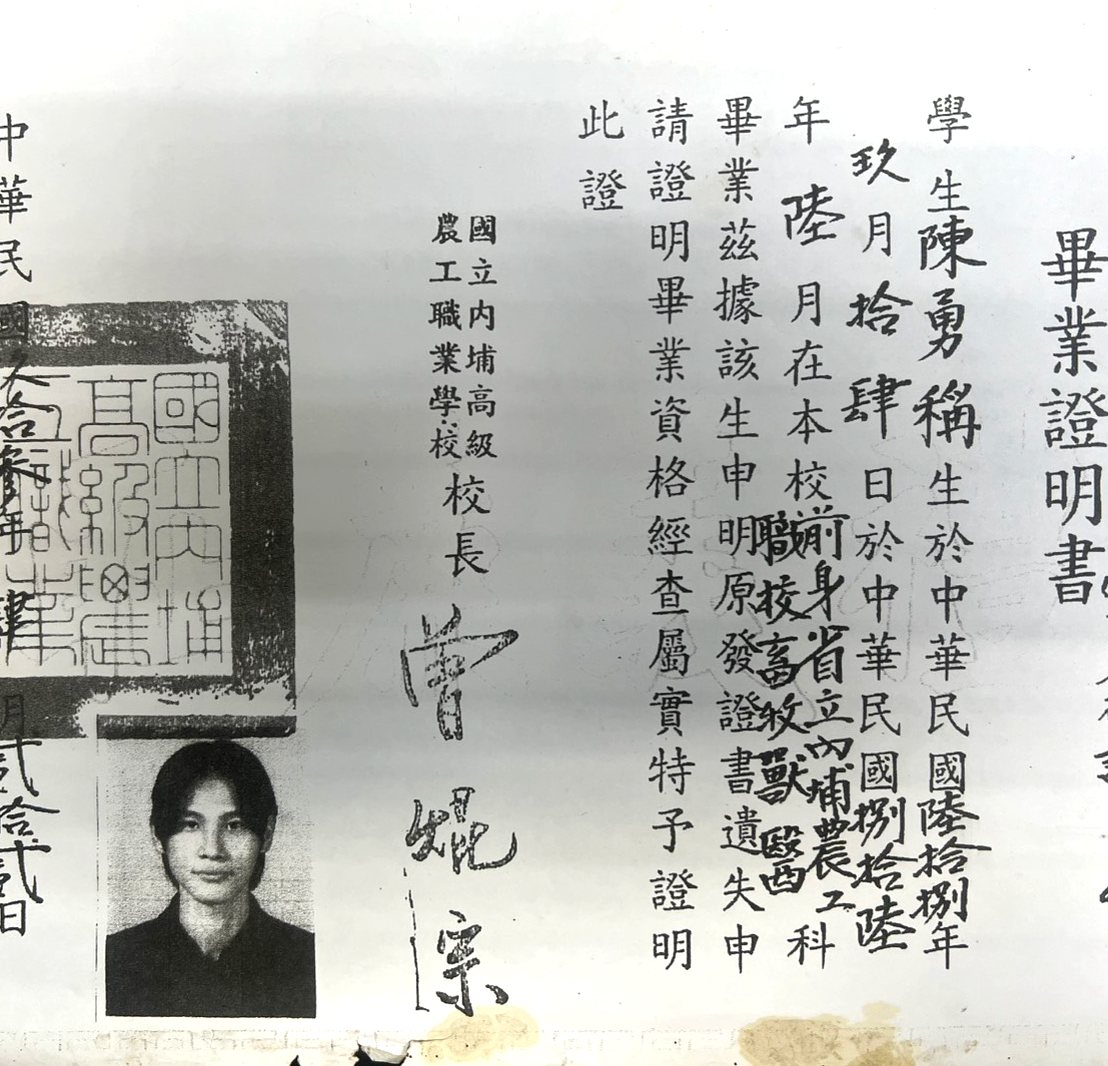 畢業證明書
學生陳勇稱生於中華民國陸拾捌年
玖月拾肆日於中華民國捌拾陸
年陸月在本校前身省立內埔農工
職校畜牧獸醫科
畢業茲據該生申明原發證書遺失申
請證明畢業資格經查屬實特予證明
此證
國立內埔高級
農工職業學校
校長 曾焜宗
中華民國久拾參年肆月貳拾貳日
國立內埔
高級農